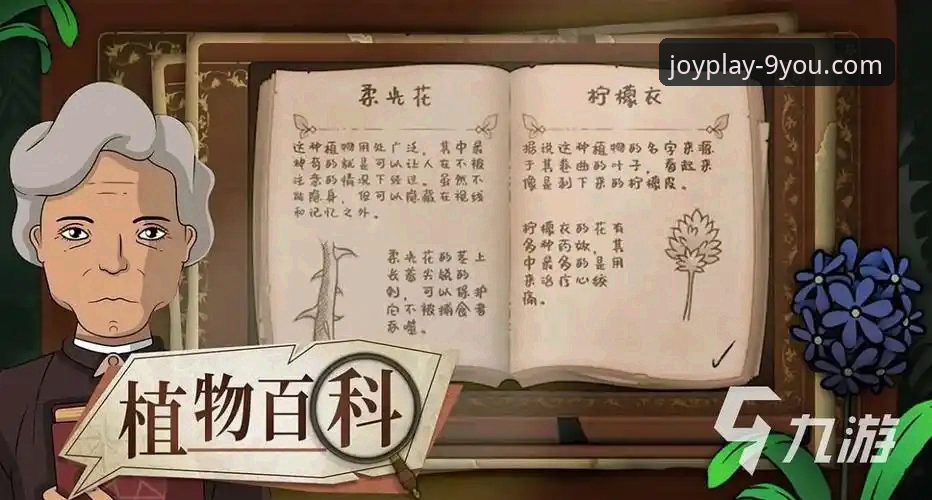 joyplay-9you.com
柔光花
这种植物用处广泛。其中最
神奇的就是可以让人在不被
注意的情况下经过。虽然不
能隐身，但可以隐藏在视线
和记忆之外。
柔光花的茎上
长着尖锐的
刺，可以保护
它不被捕食者
吞噬。
柠檬衣
据说这种植物的名字来源
于其卷曲的叶子，看起来
像是剥下来的柠檬皮。
柠檬衣的花有
多种用途，其
中最多的是用
来治疗心绞
痛。
植物百科
九游